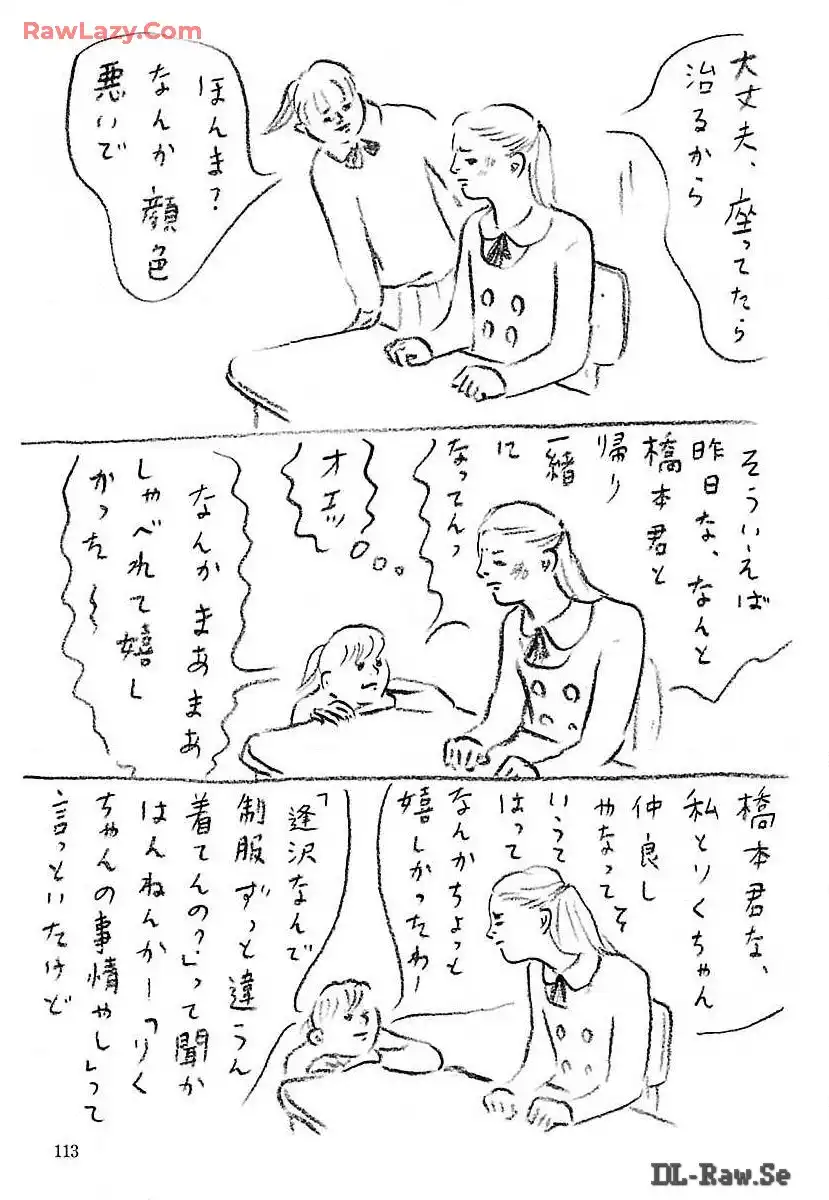 RawLazy.Com
大丈夫、座ってたら
治るから
ほんま?
なんか顔色
悪いで
そういえば
昨日な、なんと
橋本君と
帰り
一緒
に
なってんっ
オエッ
なんかまあまあ
しゃべれて嬉し
かった〜
橋本君な、
私とりくちゃん
仲良し
やなってそ
いうて
はって
なんかちょっと
嬉しかったわー
「逢沢なんで
制服ずっと違うん
着てんの?」って聞か
はんねんかー「りく
ちゃんの事情やし」って
言っといたけど
113
DL-Raw.Se